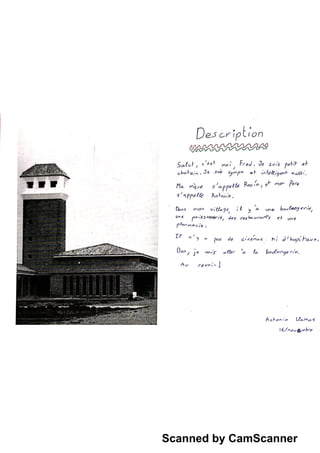 Description
Salut, c'est moi, Fred. Je suis petit et
chatain. Je suis sympa et intelligent aussi.
Ma mère s'appelle Rocío, et mon père
s'appelle Antonio.
Dans mon village, il y'a une boulangerie,
une poissonnerie, des restaurants et une
pharmacie.
Il n'y a pas de cinémas ni d'hopitaux.
Bon, je vais aller à la boulangerie.
Au revoir!
Antonin
16/novembre
Scanned by CamScanner